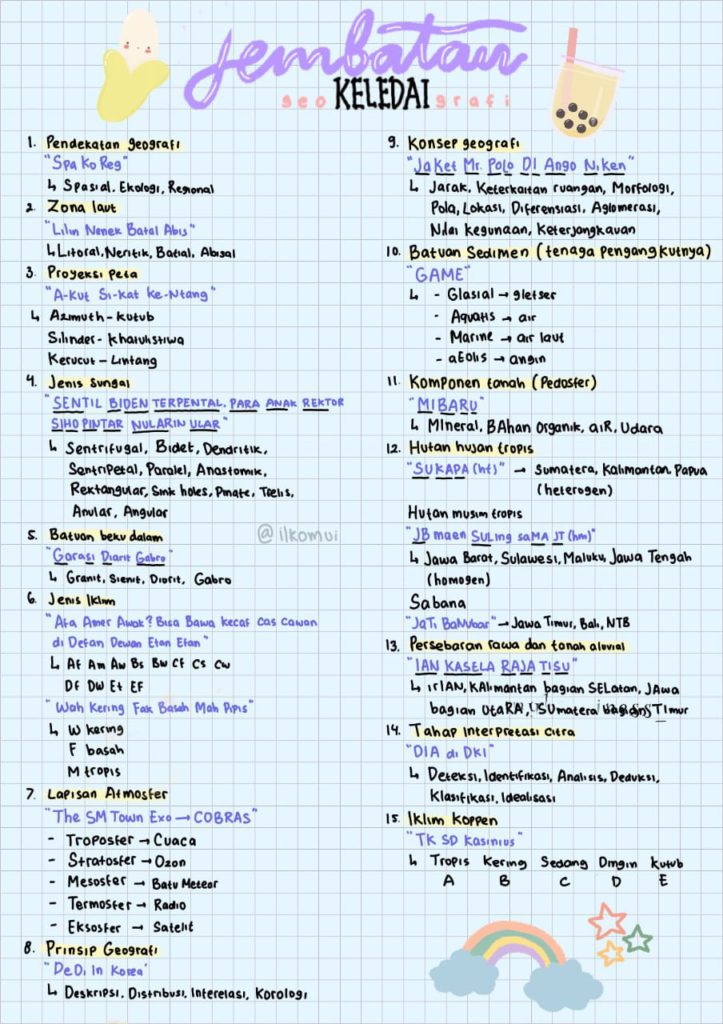 Jembatan
geo KELEDAI grafi
1. Pendekatan geografi
"Spa Ko Reg"
↳ Spasial, Ekologi, Regional
2. Zona laut
"Lilin Nenek Batal Abis"
↳ Litoral, Neritik, Batial, Abisal
3. Proyeksi peta
"A-kut Si-kat ke-Ntang"
↳ Azimuth - kutub
Silinder - khatulistiwa
Kerucut - Lintang
4. Jenis Sungai
"SENTIL BIDEN TERPENTAL. PARA ANAK REKTOR
SIHO PINTAR NULARIN ULAR"
↳ Sentrifugal, Bidet, Dendritik,
Sentripetal, Paralel, Anastomik,
Rektangular, Sink holes, Pinate, Trelis,
Anular, Angular
5. Batuan beku dalam
"Garasi Diorit Gabro"
↳ Granit, Sienit, Diorit, Gabro
@ilkomui
6. Jenis Iklim
"Afa Amer Awok? Bisa Bawa kecaf Cas Cawan
di Defan Dewan Etan Efan"
↳ Af Am Aw Bs Bw Cf Cs Cw
Df Dw Et EF
"Wah Kering Fak Basah Mah Pipis"
↳ W kering
F basah
M tropis
7. Lapisan Atmosfer
"The SM Town Exo → COBRAS"
- Troposfer → Cuaca
- Stratosfer → Ozon
- Mesosfer → Batu Meteor
- Termosfer → Radio
- Eksosfer → Satelit
8. Prinsip Geografi
"DeDi In Korea"
↳ Deskripsi, Distribusi, Interelasi, Korologi
9. Konsep geografi
"JaKet Mr. Polo DI Ango Niken"
↳ Jarak, Keterkaitan ruangan, Morfologi,
Pola, Lokasi, Diferensiasi, Aglomerasi,
Nilai kegunaan, Keterjangkauan
10. Batuan Sedimen (tenaga pengangkutnya)
"GAME"
↳ - Glasial → gletser
- Aquatis → air
- Marine → air laut
- aEolis → angin
11. Komponen tanah (Pedosfer)
"MIBARU"
↳ MIneral, BAhan Organik, aiR, Udara
12. Hutan hujan tropis
"SUKAPA (ht)" → Sumatera, Kalimantan, Papua
(heterogen)
Hutan musim tropis
"JB maen SULing saMA JT (hm)"
↳ Jawa Barat, Sulawesi, Maluku, Jawa Tengah
(homogen)
Sabana
"JaTi BaNUbar" → Jawa Timur, Bali, NTB
13. Persebaran rawa dan tanah aluvial
"IAN KASELA RAJA TISU"
↳ irIAN, KAlimantan bagian SELatan, JAwa
bagian utaRA, SUmatera bagian TImur
14. Tahap Interpretasi citra
"DIA di DKI"
↳ Deteksi, Identifikasi, Analisis, Deduksi,
Klasifikasi, Idealisasi
15. Iklim Koppen
"TK SD Kasinius"
↳ Tropis Kering Sedang Dingin Kutub
A B C D E